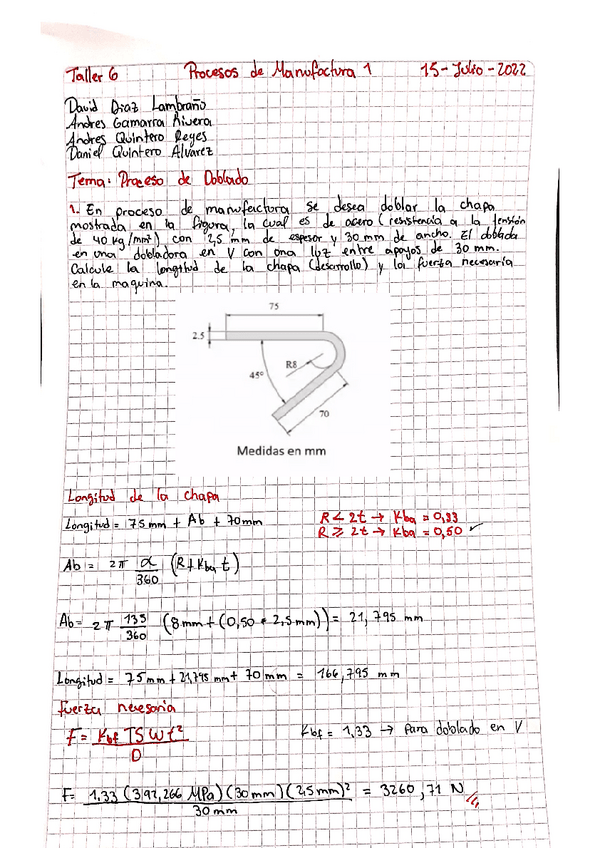 Taller 6 Procesos de Manufactura 1 15-Julio-2022
David Díaz Lambraño
Andres Gamarra Rivera
Andres Quintero Reyes
Daniel Quintero Alvarez
Tema: Proceso de Doblado
1. En proceso de manufactura se desea doblar la chapa
mostrada en la figura, la cual es de acero (resistencia a la tensión
de 40 kg/mm²) con 2,5 mm de espesor y 30 mm de ancho. El doblado
en una dobladora en V con una luz entre apoyos de 30 mm.
Calcule la longitud de la chapa (desarrollo) y la fuerza necesaria
en la maquina.
75
2.5
R8
45°
70
Medidas en mm
Longitud de la chapa
Longitud = 75mm + Ab + 70mm
R < 2t → Kba = 0,33
R ≥ 2t → Kba = 0,50 ✓
Ab = 2π α/360 (R + Kba t)
Ab = 2π 135/360 (8mm + (0,50 * 2,5mm)) = 21,795 mm
Longitud = 75mm + 21,795 mm + 70 mm = 166,795 mm
Fuerza necesaria
F = Kbf TS W t²/D
Kbf = 1,33 → Para doblado en V
F = 1,33 (392,266 MPa)(30mm)(2,5mm)²/30mm = 3260,71 N